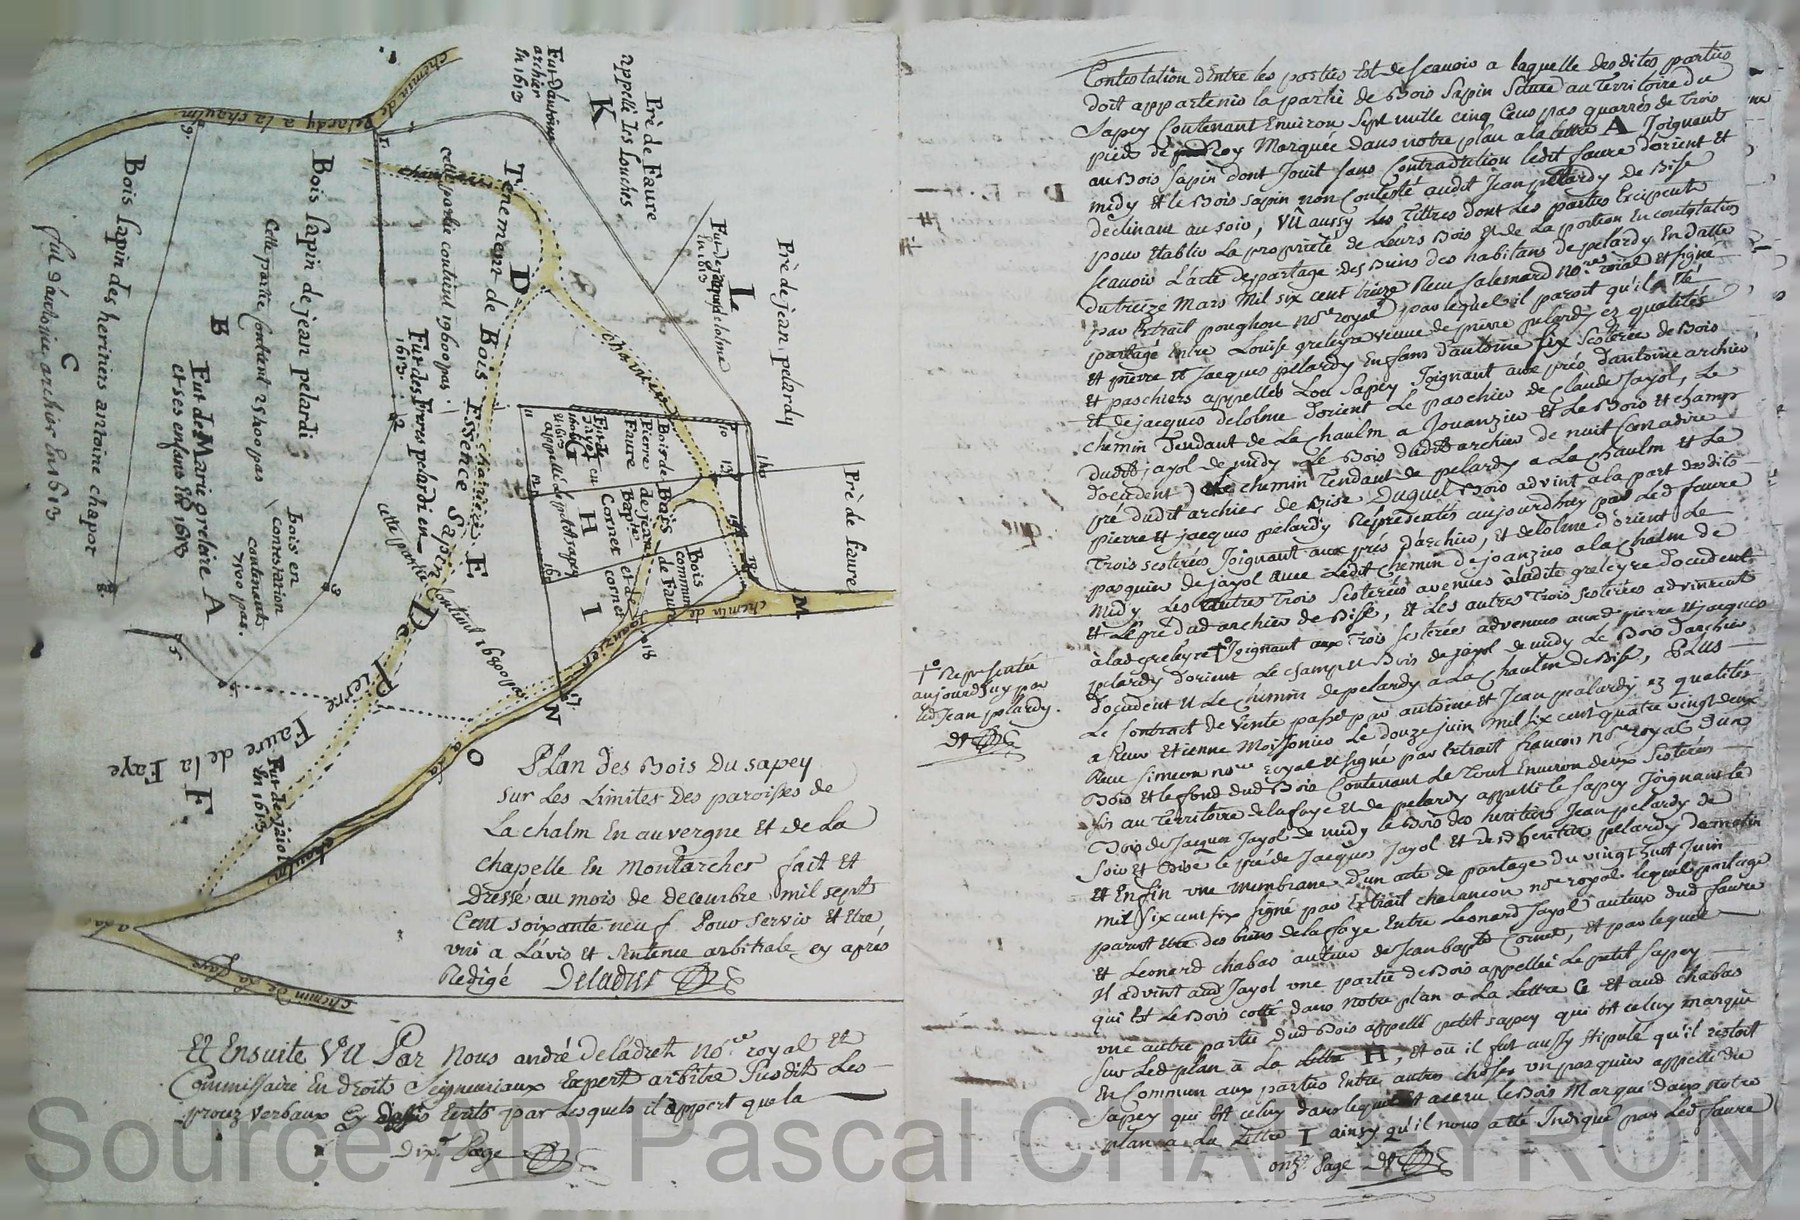 chemin de
Pelardy a la chaulm
Fut d'anthoine
archier
En 1613
K
Pré de Faure
appellé les Louches
L
Fut de jacques delolme
En 1613
Pré de jean pelardy
Pré de faure
Bois sapin des heritiers antoine chapot
C
fut d'antoine archier En 1613
Bois sapin de jean pelardi
Cette partie contient 25400 pas
B
Fut de Marie greleire
et ses enfans En 1613
A
bois en
contestation
contenant
7500 pas.
Tenement de Bois Essence Sapin De Pierre
Faure de la Faye
D
E
F
cette partie contient 19600 pas.
Fut des Freres pelardi en
1613.
cette partie contient 16800 pas
charriere
charriere
charriere
Bois de
Pierre
Faure
G
appellé Le petit sapey
H
Bois
de jean
Baptte
Cornet
I
Bois
commun
de Faure
et de
cornet
M
chemin de
Joanzieu
N
O
a la
chaulm
Fut de jaiol
En 1613
chemin de la faye
PLan des Bois Du sapey
sur Les Limites Des paroisses de
La chalm En auvergne Et de La
chapelle En Montarcher fait Et
Dressé au mois de decembre mil sept
Cent soixante neuf Pour servir Et Etre
uni a L'avis Et Sentence arbitrale cy apres
Redigé Deladret
Et Ensuite Vu Par Nous andré Deladret Nore royal Et
Commissaire En droits Seigneuriaux Expert arbitre Susdit Les
procez verbaux cy dessus Ecrits par Lesquels il appert que la
dixe Page
Contestation d'entre les parties Est de scavoir a laquelle desdites parties
doit appartenir la partie de Bois Sapin Située au Territoire du
Sapey Contenant Environ Sept mille cinq Cens pas quarrés de trois
pieds de Roy Marquée dans notre plan a la lettre A Joignant
au Bois sapin dont Jouit sans Contradiction ledit faure d'orient et
midy et le Bois sapin non Contesté audit Jean pelardy de Bise
declinant au soir, VU aussy Les Tittres dont Les parties Excipent
pour établir La proprieté de Leurs Bois et de La portion En contestation
scavoir L'acte de partage des Biens des habitans de pelardy En datte
du treize Mars Mil six cent treize Receu salesnard Nore roial et signé
par Extrait poughon Nore royal, par lequel il paroit qu'il a été
partagé Entre Louise greleyre veuve de pierre pelardy ez qualités
et pierre et Jacques pelardy Enfans d'antoine six sesterées de Bois
et paschiers appellés Lou Sapey Joignant aux prés d'antoine archier
et de jacques delolme d'orient Le paschier de Claude Jayol, Le
chemin Tendant de La Chaulm a Jouanzieu et Le Bois et champ
dudit jayol de midy Le Bois dudit archier de nuit (c'en a dire
docident) Le chemin Tendant de pelardy a La Chaulm et Le
pré dudit archier de Bise Duquel Bois advint a la part desdits
pierre et jacques pelardy Représentés aujourdhuy par Led faure
Trois sesterées Joignant aux prés d'archier, et delolme d'orient Le
pasquier de jayol avec Ledit chemin de joanzieu a la Chalm de
Midy Les autres Trois sesterées avenues a ladite greleyre docident
et Le pré dud archier de Bise, et Les autres Trois sesterées advinrent
à lad greleyre + Joignant aux Trois sesterées advenues auxd pierre et jacques
pelardy d'orient Le champ et Bois de jayol de midy Le Bois d'archier
docident et Le chemin de pelardy a La Chaulm de Bise, PLus
Le Contract de Vente passé par antoine et Jean pelardy ez qualités
a sieur Etienne Moissonier Le douze juin mil six cent quatre vingt deux
Receu simeon nore royal et signé par Extrait françois Nore royal d'un
Bois et le fond dud Bois Contenant Le Tout Environ deux Sesterées
sis au Territoire de la faye et de pelardy appellé le sapey Joignant Le
Bois de Jacques Jayol de midy le Bois des heritiers Jean pelardy de
Soir et Bise le pré de Jacques Jayol et desd heritiers pelardy de matin
Et Enfin une membrane d'un acte de partage du vingt huit Juin
mil six cent six signé par Extrait chalancon nore royal lequel partage
paroit etre des biens de la faye Entre Leonard Jayol auteur dud faure
et Leonard chabas auteur de Jean bapte Cornet, et par lequel
Il advint aud Jayol une partie de Bois appellée Le petit sapey
qui Est Le Bois cotté dans notre plan a La Lettre G et aud chabas
une autre partie dud Bois appellé petit sapey qui est celuy marqué
sur Led plan a La lettre H, et où il fut aussy stipulé qu'il restoit
En Commun aux parties Entre autres choses un pasquier appellé du
sapey qui est celuy dans lequel est accru Le Bois Marqué dans notre
plan a La Lettre I ainsy qu'il nous a été Indiqué par Led faure
onze Page
+ Representée
aujourdhuy par
led Jean pelardy.
Source AD Pascal CHAREYRON